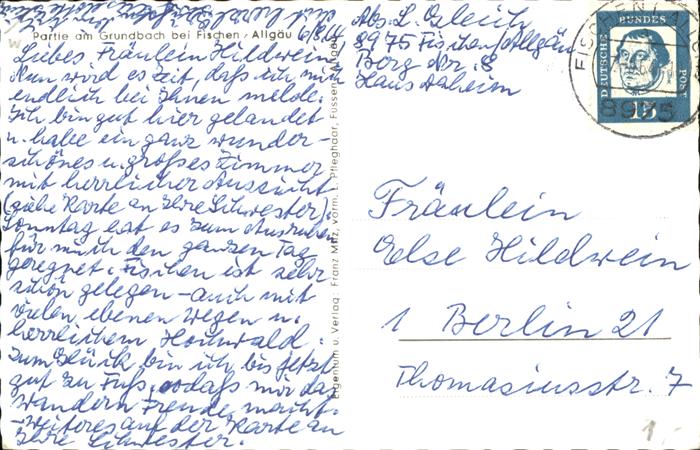 Partie am Grundbach bei Fischen / Allgäu 6/8.64
Liebes Fräulein Hildwein
Nun wird es Zeit, daß ich mich
endlich bei Ihnen melde.
Ich bin gut hier gelandet
u. habe ein ganz wunder-
schönes u. großes Zimmer
mit herrlicher Aussicht
(siehe Karte an Ihre Schwester)
Sonntag hat es zum Ausruhen
für mich den ganzen Tag
geregnet. Fischen ist sehr
schön gelegen – auch mit
vielen ebenen Wegen u.
herrlichem Hochwald.
Zum Glück bin ich bis jetzt
gut zu Fuß, sodaß mir das
Wandern Freude macht.
– Weiteres auf der Karte an
Ihre Schwester.
Eigentum u. Verlag: Franz Milz, vorm. L. Pfleghaar, Füssen, Allgäu
Abs. L. Gleich
8975 Fischen/Allgäu
Berg Nr. 8
Haus Daheim
DEUTSCHE BUNDESPOST
15
FISCHEN
8975
Fräulein
Else Hildwein
1 Berlin 21
Thomasiusstr. 7
1,-